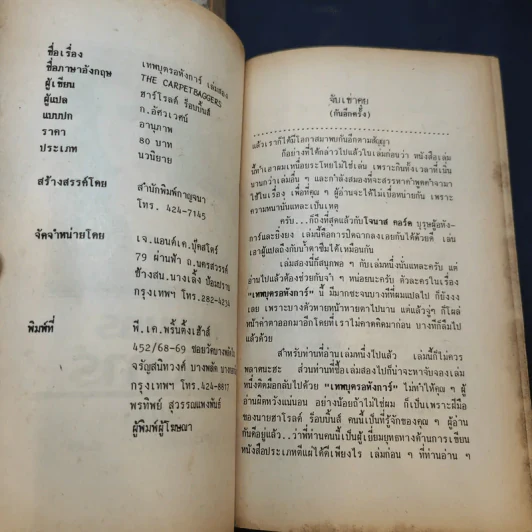 ชื่อเรื่อง
เทพบุตรอหังการ์ เล่มสอง
ชื่อภาษาอังกฤษ
THE CARPETBAGGERS
ผู้เขียน
ฮาร์โรลด์ ร็อบบิ้นส์
ผู้แปล
ก.อัศวเวศน์
แบบปก
อานุภาพ
ราคา
80 บาท
ประเภท
นวนิยาย
สร้างสรรค์โดย
สำนักพิมพ์กาญจนา
โทร. 424-7145
จัดจำหน่ายโดย
เจ.แอนด์เค.บุ๊คสโตร์
79 ผ่านฟ้า ถ.นครสวรรค์
ข้างสน.นางเลิ้ง ป้อมปราบ
กรุงเทพฯ โทร.282-4234
พิมพ์ที่
พี.เค.พริ้นติ้งเฮ้าส์
452/68-69 ซอยวัด
จรัญสนิทวงศ์ บางพลัด
กรุงเทพฯ โทร.424-8817
พรทิพย์ สุวรรณแพงพันธ์
ผู้พิมพ์ผู้โฆษณา
จับเข่าคุย
(กันอีกครั้ง)
แล้วเราก็ได้มีโอกาสมาพบกันอีกตามสัญญา
ก็อย่างที่ได้กล่าวไปแล้วในเล่มก่อนว่า หนังสือเล่ม
นี้ทำเอาผมเหนื่อยระโหยไม่ใช่เล่น เพราะกินทั้งเวลาที่เนิ่น
นานกว่าเล่มอื่น ๆ และกำลังสมองที่จะสรรหาคำพูดคำจามา
ใช้ในเรื่อง เพื่อที่คุณ ๆ ผู้อ่านจะได้ไม่เบื่อหน่ายกัน เพราะ
ความหนานั่นแหละเป็นเหตุ
ครับ...ก็ถึงที่สุดแล้วกับโจนาส คอร์ด บุรุษผู้อหัง-
การ์และยิ่งยง เล่มนี้คือการปิดฉากลงเอยกันได้ด้วยดี เล่น
เอาผู้แปลถึงกับน้ำตาซึมได้เหมือนกัน
เล่มสองนี้ก็สนุกพอ ๆ กับเล่มหนึ่งนั่นแหละครับ แต่
อ่านไปแล้วต้องช่วยกันจำ ๆ หน่อยนะครับ ตัวละครในเรื่อง
"เทพบุตรอหังการ์" นี้ มีมากซะจนบางทีที่ผมแปลไป ก็ยังงง
เลย เพราะบางตัวหายหน้าหายตาไปนาน แต่แล้วจู่ๆ ก็โผล่
หน้าค่าตาออกมาอีกโดยที่เราไม่คาดคิดมาก่อน บางทีก็ลืมไป
แล้วด้วย
สำหรับท่านที่อ่านเล่มหนึ่งไปแล้ว เล่มนี้ก็ไม่ควร
พลาดนะฮะ ส่วนท่านที่ซื้อเล่มสองไปก็น่าจะหาจับจองเล่ม
หนึ่งติดมือกลับไปด้วย "เทพบุตรอหังการ์" ไม่ทำให้คุณ ๆ ผู้
อ่านผิดหวังแน่นอน อย่างน้อยถ้าไม่ใช่ผม ก็เป็นเพราะฝีมือ
ของนายฮาโรลด์ ร็อบบิ้นส์ คนนี้เป็นที่รู้จักของคุณ ๆ ผู้อ่าน
กันดีอยู่แล้ว..ว่าพี่ท่านคนนี้เป็นผู้เยี่ยมยุทธทางด้านการเขียน
หนังสือประเภทตีแผ่ได้ดีเพียงไร เล่มก่อน ๆ ที่ท่านอ่าน ๆ